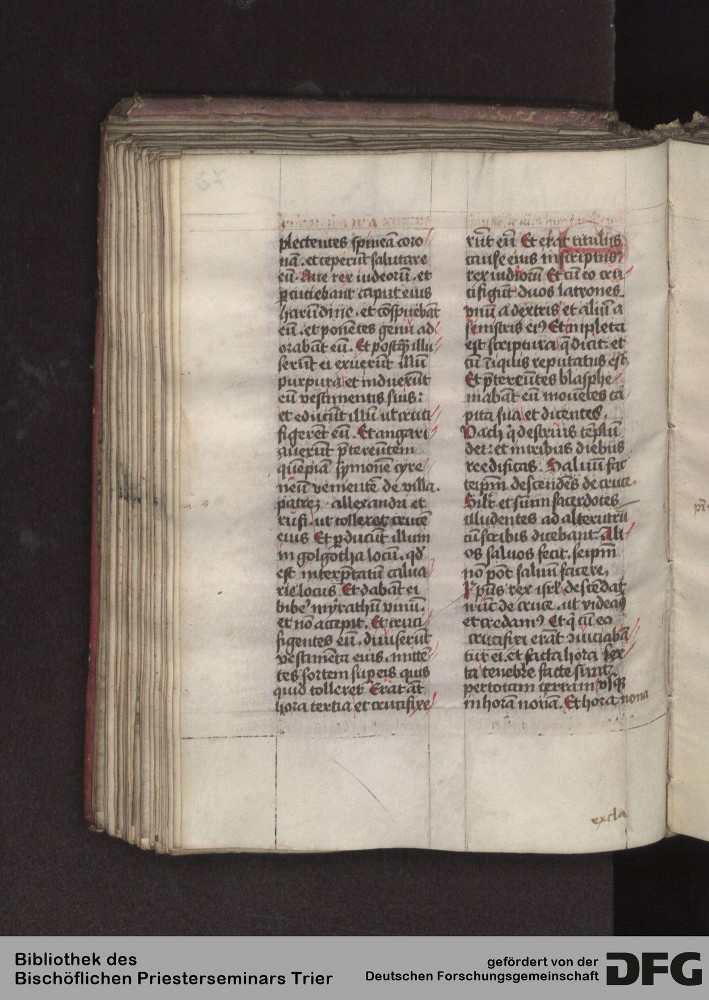 plectentes spineā coro
nā. et ceperūt salutare
eū. Aue rex iudeorū. et
percutiebant caput eius
harundine. et cōspuebāt
eū. et ponētes genu ad
orabāt eū. Et postq̄ illu
serūt ei exuerūt illū
purpura et induerūt
eū vestimentis suis:
et educūt illū ut cruci
figerēt eū. Et angari
auerūt p̄tereūtem
quēpiā symonē cyre
neū venientē de villa.
patrē alexandri et
rufi. ut tolleret crucē
eius Et ꝑducūt illum
in golgotha locū. qd̄
est interp̄tatū calua
rie locus Et dabāt ei
bibē myrrathū vinū.
et nō accepit. Et cruci
figentes eū. diuiserūt
vestimēta eius. mittē
tes sortem sup eis quis
quid tolleret Erat āt
hora tertia et crucifixe
rūt eū Et erat titulus
cause eius inscriptus
rex iudeorū Et cū eo cru
cifigūt duos latrones
vnū a dextris et aliū a
sinistris eiꝰ Et īmpleta
est scriptura q̄ dicit. et
cū īiquis reputatus est
Et p̄tereūtes blasphe
mabāt eū mouētes ca
pita sua et dicentes.
Vach q̄ destruis tēplū
dei: et in tribus diebus
reedificas. Saluū fac
teip̄m descendēs de cruce.
Silr̄ et sūmi sacerdotes
illudentes ad alterutrū
cū scribis dicebant Ali
os saluos fecit. seip̄m
nō pōt saluū facere,
xp̄us rex isrl̄ descēdat
nūc de cruce. ut videaꝰ
et credamꝰ Et q̄ cū eo
crucifixi erāt ꝯuiciabā
tur ei. et facta hora sex
ta tenebre facte sūnt
per totam terram vsq̄
in horā nonā. Et hora nona
excla
72
Bibliothek des
Bischöflichen Priesterseminars Trier
gefördert von der
Deutschen Forschungsgemeinschaft
DFG